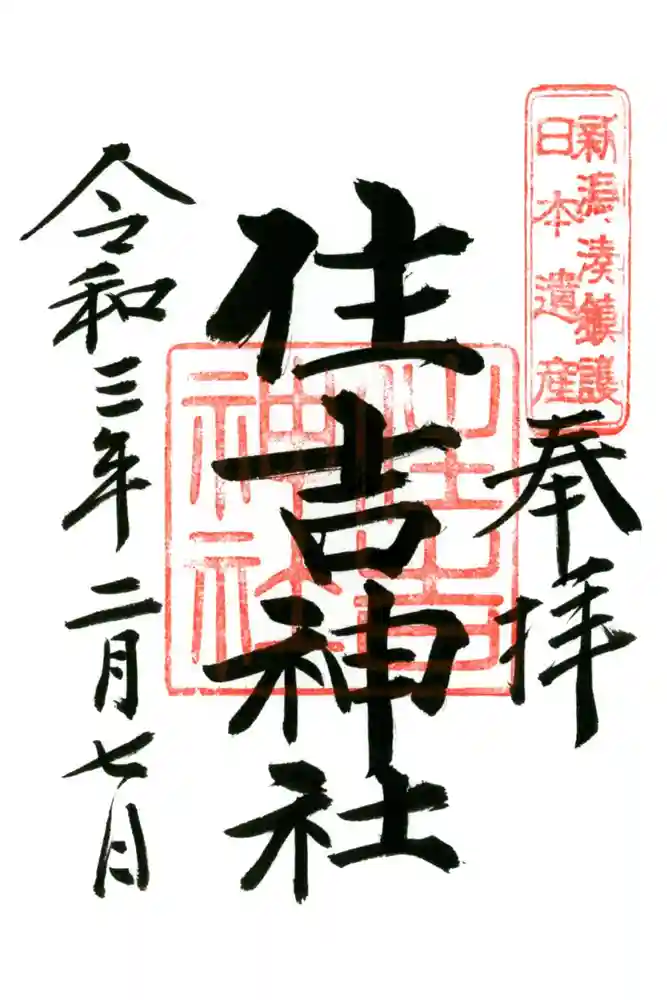 新潟湊鎮護
日本遺産
奉拝
住吉神社
住吉
神社
令和三年二月七日